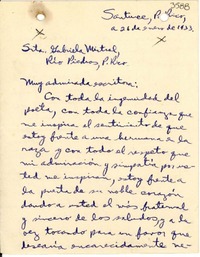 3588
Santurce, P. Rico,
a 26 de enero de 1933.
Srta. Gabriela Mistral,
Río Piedras, P. Rico.
Muy admirada escritora:
Con toda la ingenuidad del
poeta, con toda la confianza que
me inspira el sentimiento de que
estoy frente a una hermana de la
raza, y con todo el respeto que
mi admiración y simpatía por us-
ted me inspiran, estoy frente a
la puerta de su noble corazón
dando a usted el más fraternal
y sincero de los saludos, y a la
vez tocando por un favor que
desearía encarecidamente me-